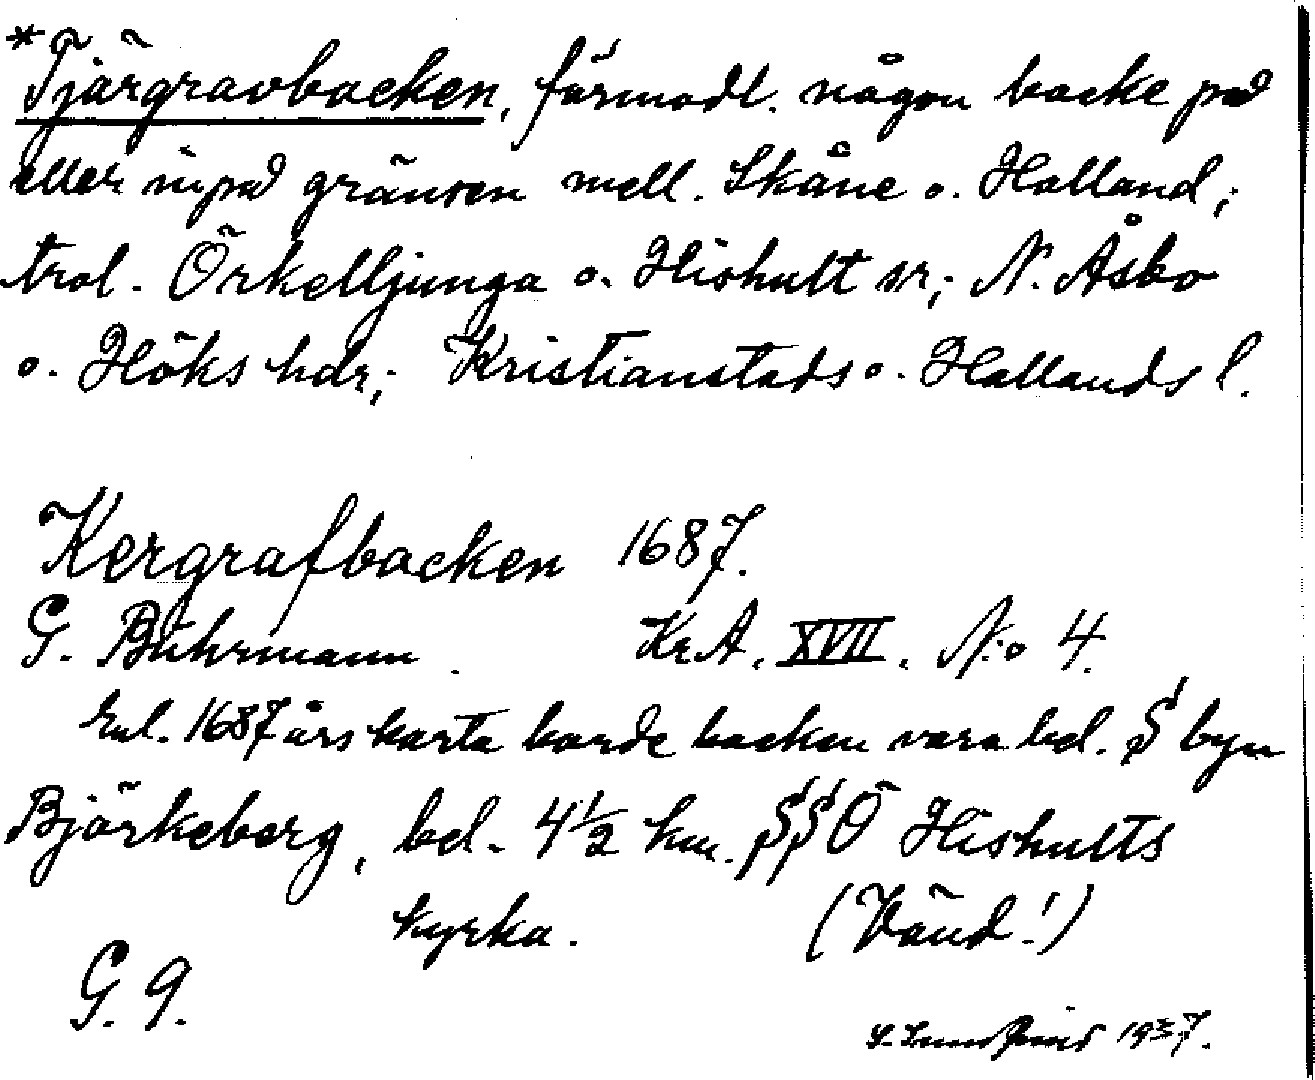 *Tjärgravbacken, förmodl. någon backe på
eller inpå gränsen mell. Skåne o. Halland;
trol. Örkelljunga o. Hishult sr; N. Åsbo
o. Höks hdr; Kristianstads o. Hallands l.
Kergrafbacken 1687.
G. Buhrmann. KrA. XVII. N:o 4.
Enl. 1687 års karta borde backen vara bel. S byn
Björkeberg, bel. 4½ km. SSÖ Hishults
kyrka. (Vänd!)
G. 9.
1937.